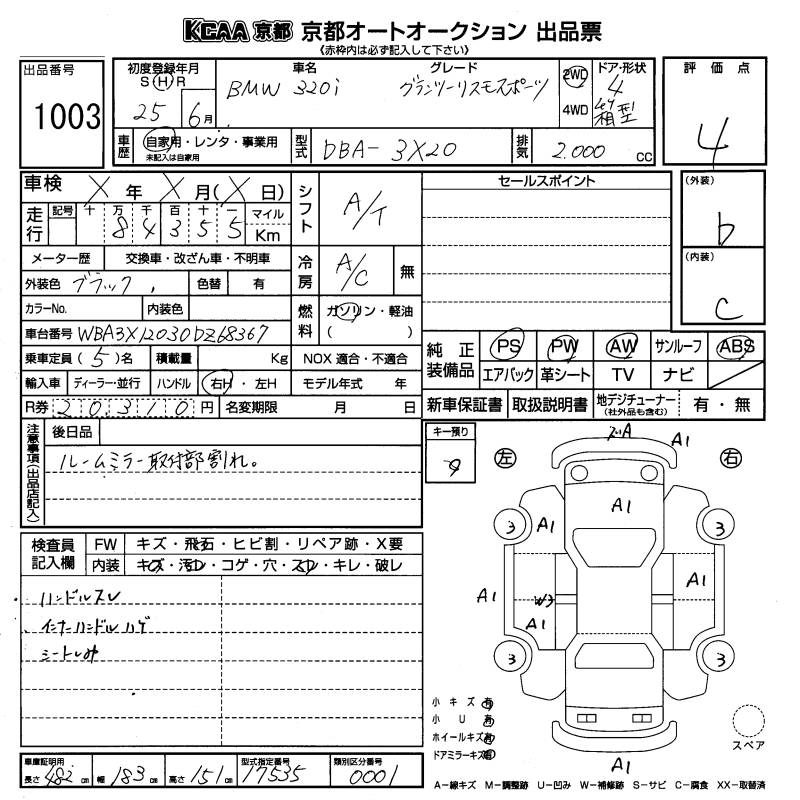 KCAA 京都 京都オートオークション 出品票
《赤枠内は必ず記入して下さい》
出品番号 1003
初度登録年月 S H R 25 6月
車名 BMW 320i
グレード グランツーリスモスポーツ
2WD 4WD
ドア・形状 4 箱型
評価点 4
車歴 自家用・レンタ・事業用
未記入は自家用
型式 DBA- 3X20
排気 2.000 cc
車検 X 年 X 月(X 日)
シフト A/T
セールスポイント
(外装) b
走行 記号 十 万 千 百 十 一 マイル
8 4 3 5 5 Km
メーター歴 交換車・改ざん車・不明車
冷房 A/C 無
(内装) C
外装色 ブラック 色替 有
カラーNo. 内装色
燃料 ガソリン・軽油
( )
車台番号 WBA3X12030DZ68367
乗車定員 (5) 名 積載量 Kg NOX 適合・不適合
純正装備品 PS PW AW サンルーフ ABS
エアバック 革シート TV ナビ
輸入車 ディーラー・並行 ハンドル 右H・左H モデル年式 年
R券 20310 円 名変期限 月 日
新車保証書 取扱説明書 地デジチューナー 有・無
(社外品も含む)
注意事項(出品店記入)
後日品
ルームミラー取付部割れ。
キー預り
左 右
A1
A1
3 A1 3
A1 A1
W3
A1
3 3
A1
検査員記入欄
FW キズ・飛石・ヒビ割・リペア跡・X要
内装 キズ・汚レ・コゲ・穴・スレ・キレ・破レ
ハンドルスレ
インナーハンドルハゲ
シートしみ
小キズ 有
小U 有
ホイールキズ 有
ドアミラーキズ 有
スペア
車庫証明用
長さ 482 cm 幅 183 cm 高さ 151 cm
型式指定番号 17535
類別区分番号 0001
A−線キズ M−調整跡 U−凹み W−補修跡 S−サビ C−腐食 XX−取替済